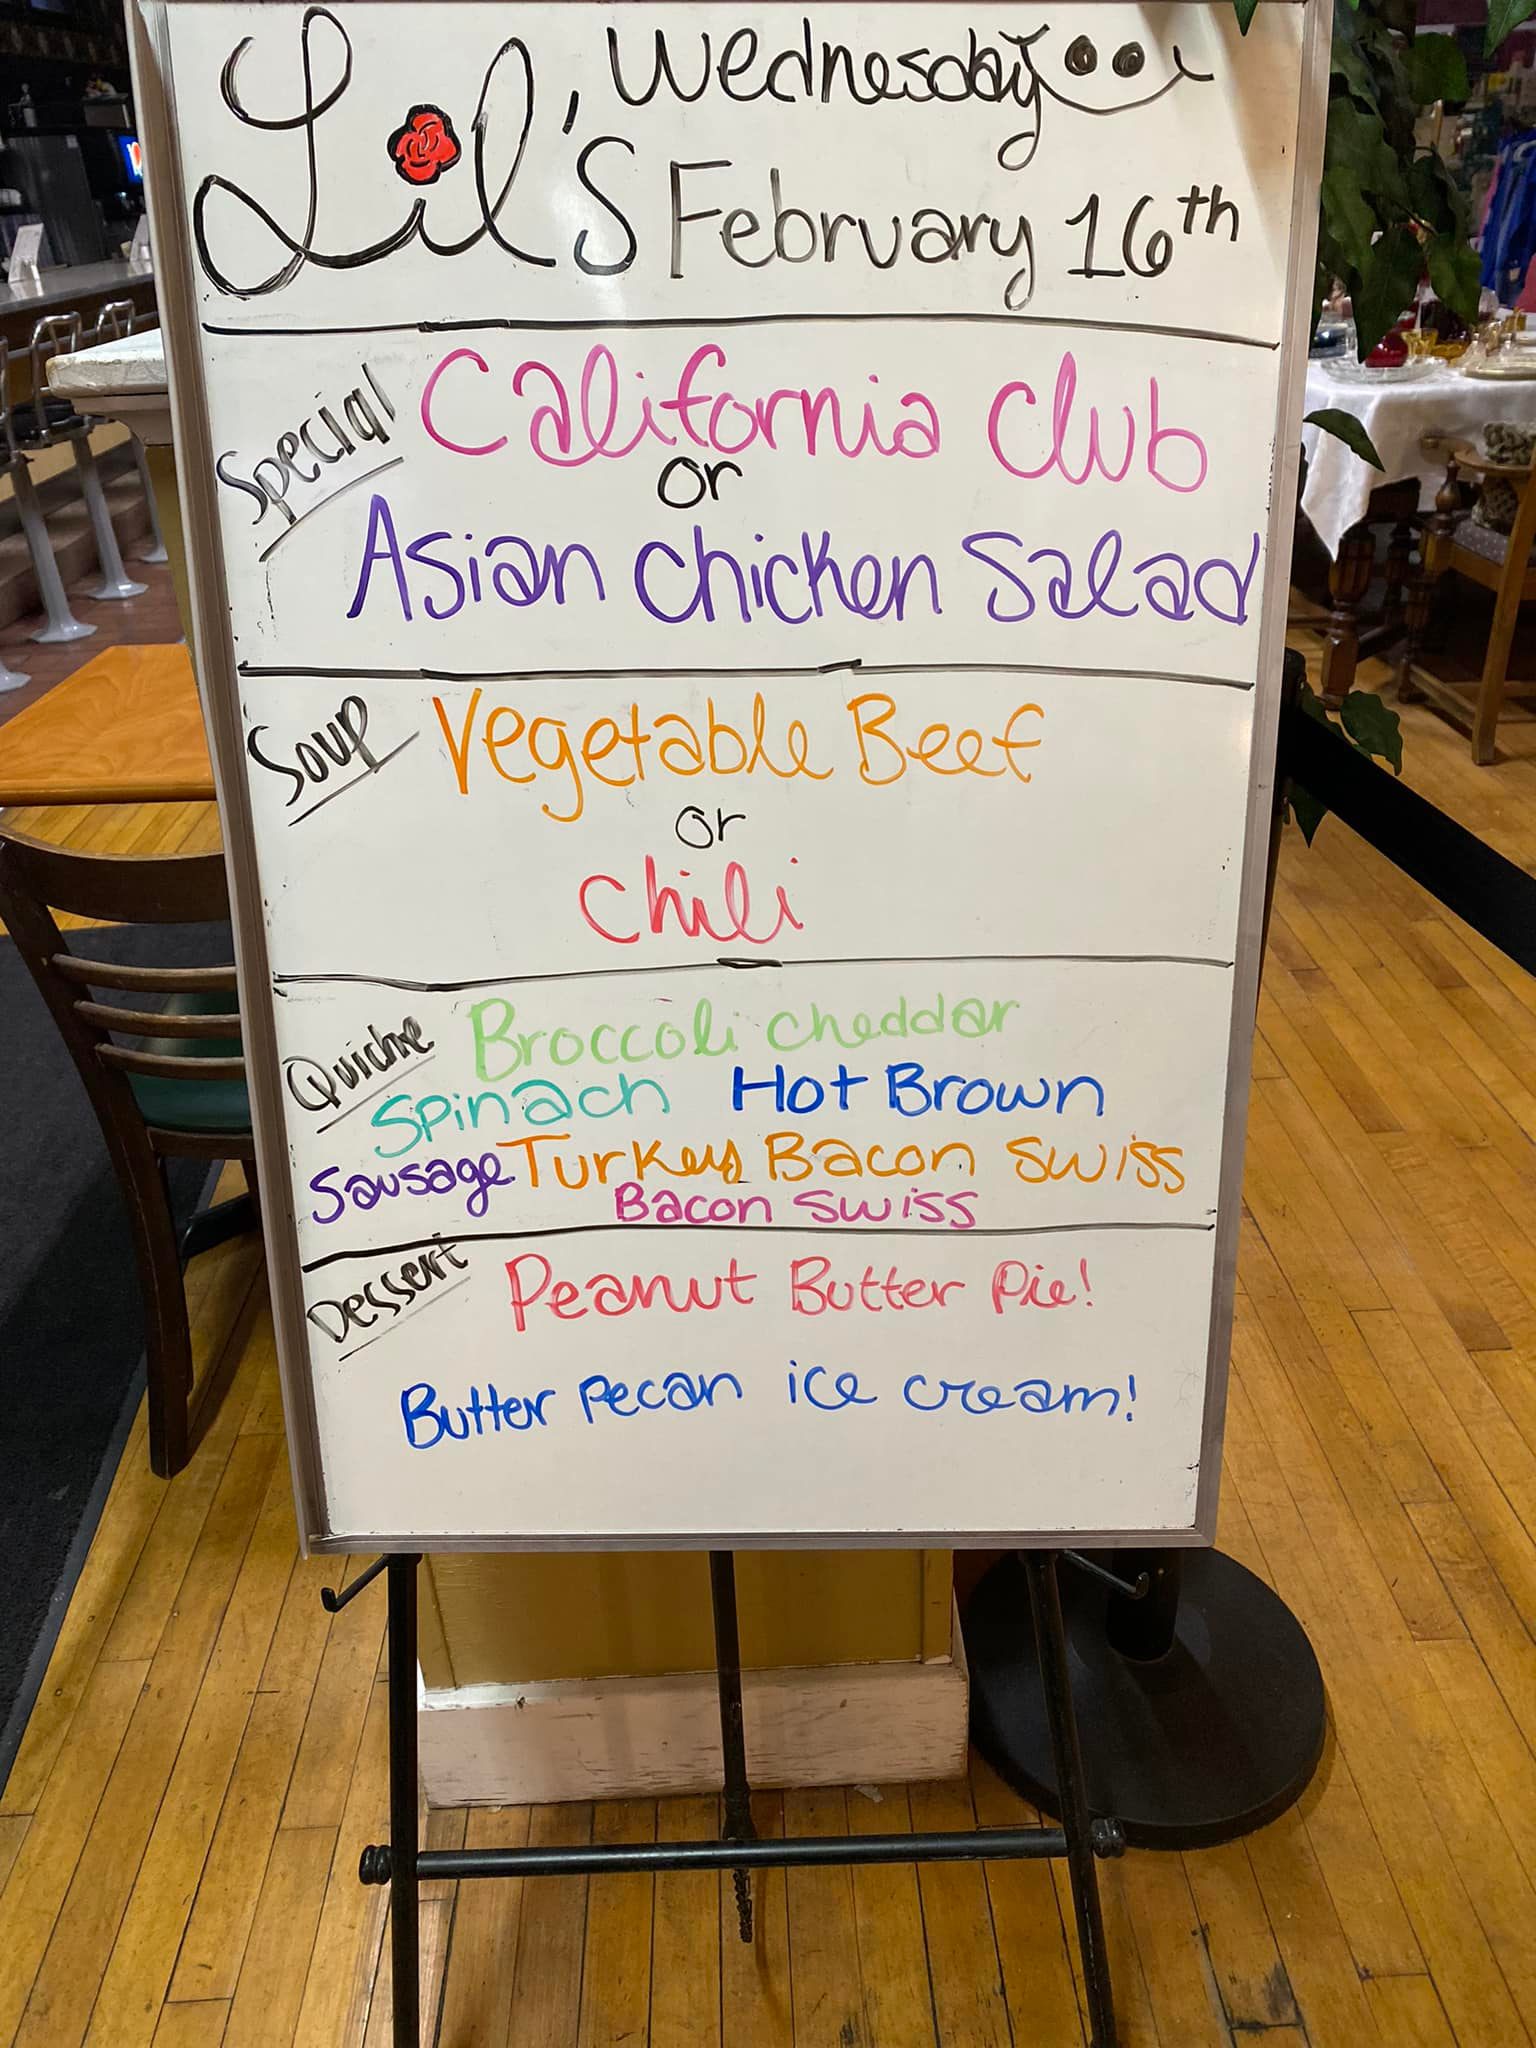 Lil's Wednesday
February 16th
Special California Club
or
Asian Chicken Salad
Soup Vegetable Beef
or
Chili
Quiche Broccoli Cheddar
Spinach Hot Brown
Sausage Turkey Bacon Swiss
Bacon Swiss
Dessert Peanut Butter Pie!
Butter Pecan ice cream!